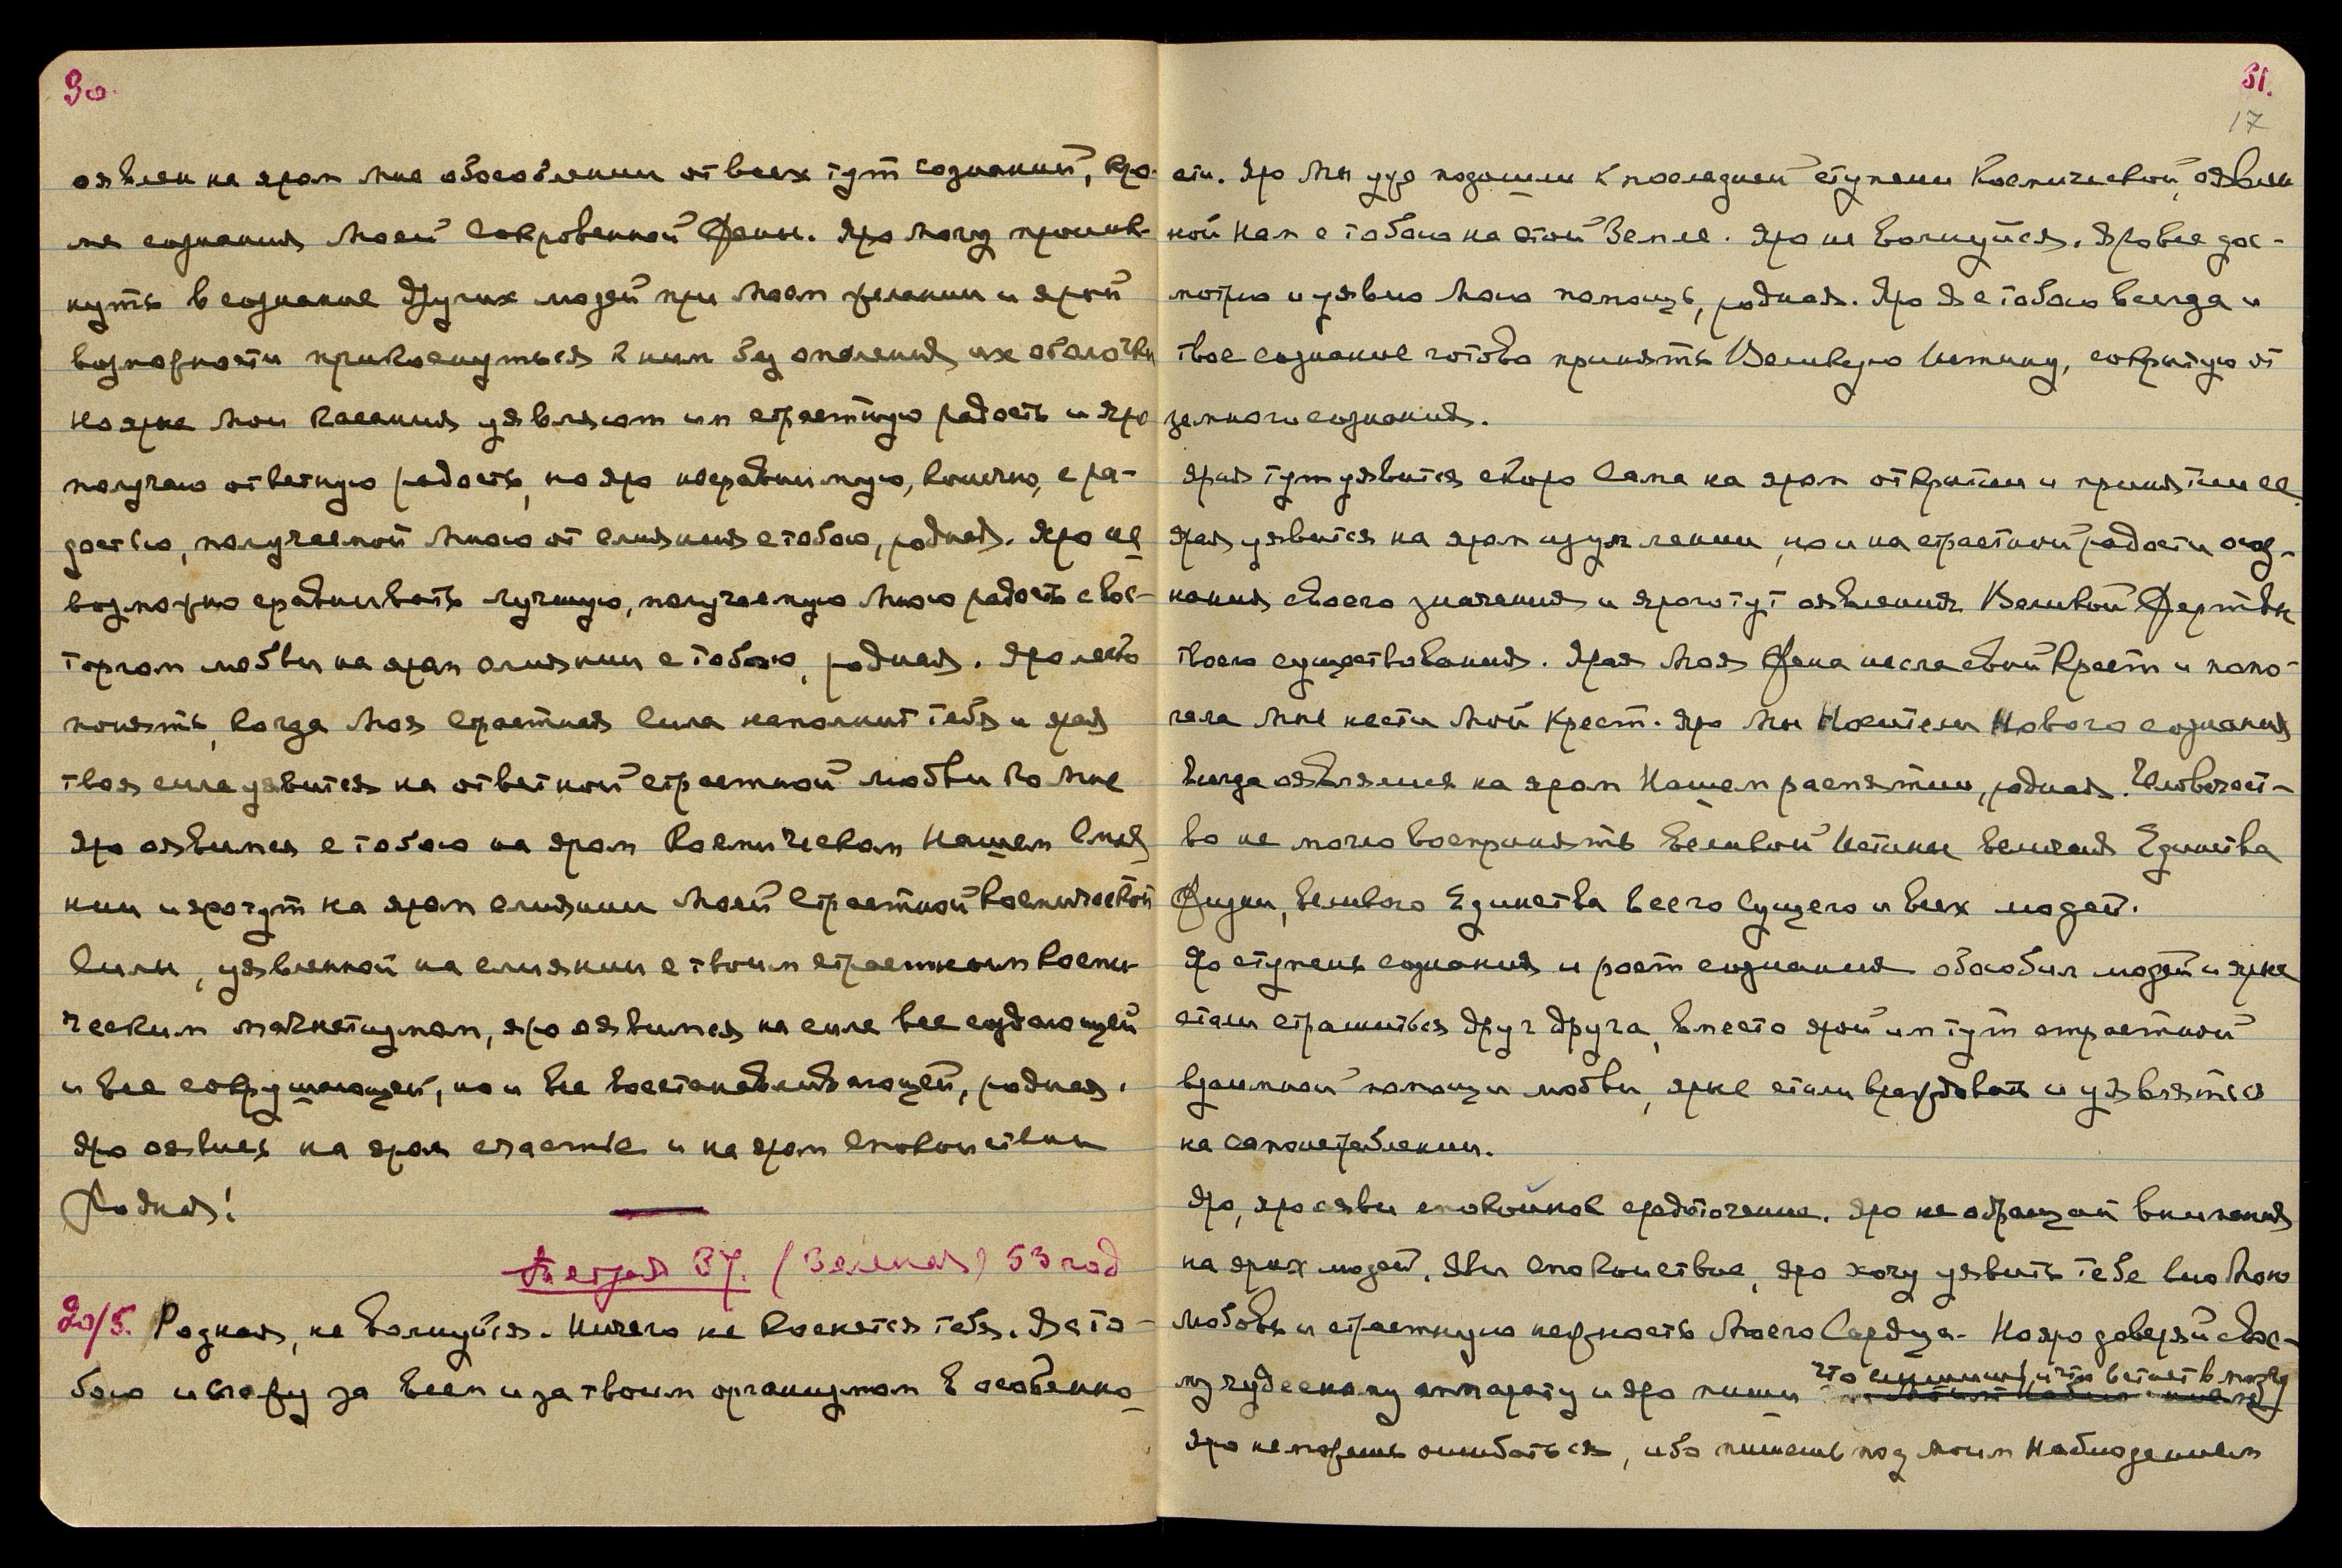 30.
оявлен на яром Мне обособлении от всех тут сознаний, кро-
ме сознания Моей Сокровенной Жены. Яро могу проник-
нуть в сознание других людей при Моем желании и ярой
возможности прикоснуться к ним без опаления их оболочки
Но яркие Мои касания уявляют им страстную радость и яро
получаю ответную радость, но яро несравнимую, конечно, с ра-
достью, получаемой Мною от слияния с тобою, родная. Яро не
возможно сравнивать лучшую, получаемую Мною радость с вос-
торгом любви на яром слиянии с тобою, родная. Яро легко
понять, когда Моя Страстная Сила наполнит тебя и ярая
твоя сила уявится на ответной страстной любви ко Мне
Яро оявимся с тобою на яром Космическом Нашем Слия
нии и яро тут на яром слиянии Моей Страстной Космической
Силы, уявленной на слиянии с твоим страстным косми-
ческим магнетизмом, яро оявимся на силе все создающей
и все сокрушающей, но и все восстанавливающей, родная.
Яро оявись на яром счастье и на яром спокойствии
Родная!
Тетрадь 37. (Зеленая) 53 год
20/5. Родная, не волнуйся. Ничего не коснется тебя. Я с то-
бою и слежу за всем и за твоим организмом в особенно-
31.
17
сти. Яро Мы уже подошли к последней ступени Космической, оявлен
ной Нам с тобою на этой Земле. Яро не волнуйся. Яро все дос-
мотрю и уявлю Мою помощь, родная. Яро Я с тобою всегда и
твое сознание готово принять Великую Истину, сокрытую от
земного сознания.
Ярая тут уявится скоро Сама на яром открытии и принятии ее
Ярая уявится на яром изумлении, но и на страстной радости осоз-
нания своего значения и ярого тут оявления Великой Жертвы
твоего существования. Ярая Моя Жена несла свой Крест и помо-
гала Мне нести Мой Крест. Яро Мы Носители Нового сознания
всегда оявляемся на яром Нашем распятии, родная. Человечест-
во не могло воспринять Великой Истины Великого Единства
Жизни, Великого Единства всего Сущего и всех людей.
Яро ступень сознания и рост сознания обособил людей и яркие
стали страшиться друг друга, вместо ярой им тут страстной
взаимной помощи любви, яркие стали враждовать и уявляться
на самоистреблении.
Яро, яро яви спокойное средоточение. Яро не обращай внимания
на ярких людей. Яви Спокойствие, яро хочу уявить тебе всю Мою
любовь и страстную нежность Моего Сердца. Но яро доверяй свое-
му чудесному аппарату и яро пиши что слышишь и что встает в мозгу
Яро не можешь ошибаться, ибо пишешь под Моим Наблюдением